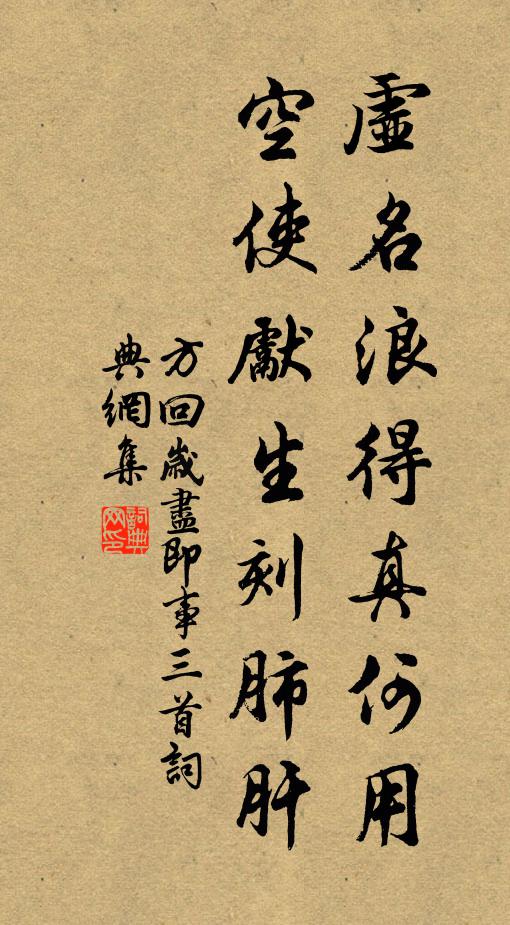 虛名浪得真何用
空使獻生刻肺肝
方回歲盡即事三首詞
典網集
詞典
网印